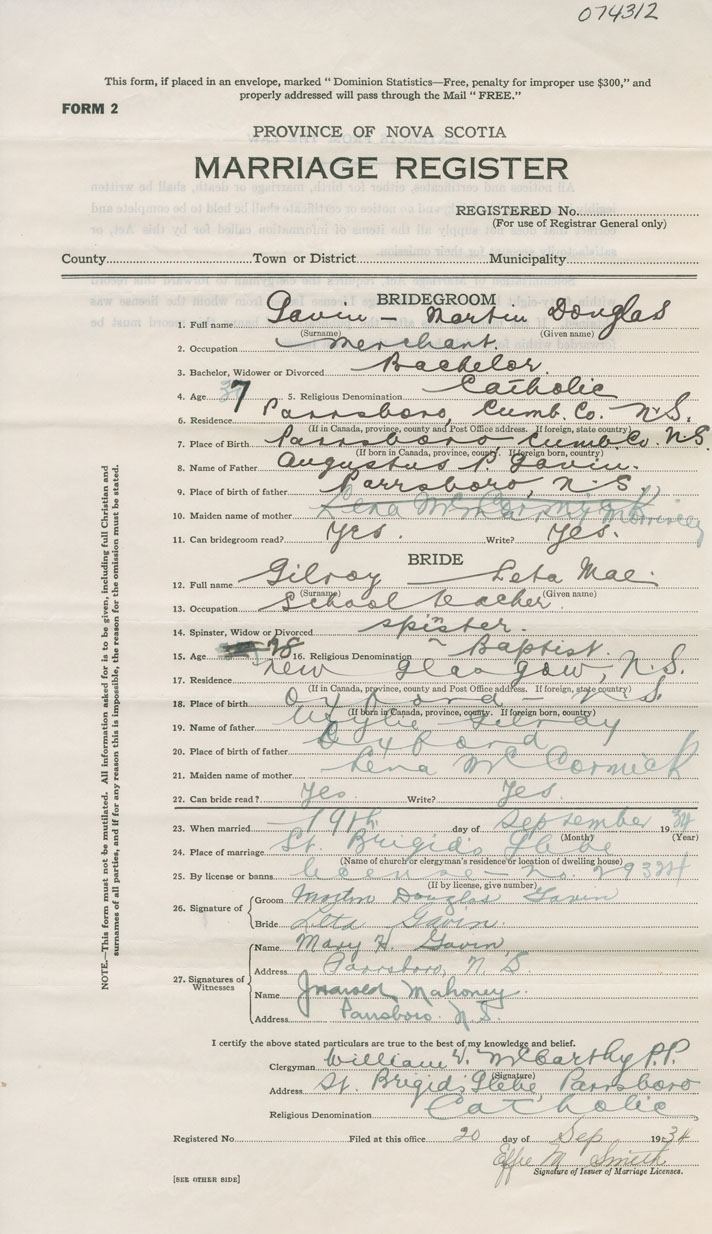 074312
This form, if placed in an envelope, marked " Dominion Statistics—Free, penalty for improper use $300," and
properly addressed will pass through the Mail " FREE."
FORM 2
PROVINCE OF NOVA SCOTIA
MARRIAGE REGISTER
REGISTERED No.
(For use of Registrar General only)
County Town or District Municipality
BRIDEGROOM
1. Full name Gavin — Martin Douglas
(Surname) (Given name)
2. Occupation Merchant.
3. Bachelor, Widower or Divorced Bachelor.
4. Age 37 5. Religious Denomination Catholic
6. Residence Parrsboro, Cumb. Co. N.S.
(If in Canada, province, county and Post Office address. If foreign, state country)
7. Place of Birth Parrsboro Cumb. Co. N.S.
(If born in Canada, province, county. If foreign born, country)
8. Name of Father Augustus P. Gavin.
9. Place of birth of father Parrsboro, N.S.
10. Maiden name of mother
11. Can bridegroom read? Yes. Write? Yes.
BRIDE
12. Full name Gilroy — Leta Mae.
(Surname) (Given name)
13. Occupation School teacher.
14. Spinster, Widow or Divorced spister.
15. Age 28 16. Religious Denomination Baptist.
17. Residence New Glasgow, N.S.
(If in Canada, province, county and Post Office address. If foreign, state country)
18. Place of birth Oxford — N.S.
(If born in Canada, province, county. If foreign born, country)
19. Name of father Wylie Gilroy
20. Place of birth of father Oxford
21. Maiden name of mother Lena McCormick
22. Can bride read? Yes. Write? Yes.
23. When married 19th day of September 1934
(Month) (Year)
24. Place of marriage St. Brigid's Glebe
(Name of church or clergyman's residence or location of dwelling house)
25. By license or banns license — No. 29324
(If by license, give number)
26. Signature of
Groom Martin Douglas Gavin
Bride Leta Gavin.
27. Signatures of Witnesses
Name Mary H. Gavin,
Address Parrsboro, N.S.
Name Mahoney.
Address Parrsboro. N.S.
I certify the above stated particulars are true to the best of my knowledge and belief.
Clergyman William V. McCarthy P.P.
(Signature)
Address St. Brigid's Glebe, Parrsboro
Religious Denomination Catholic
Registered No. Filed at this office 20 day of Sep 1934
Effie M. Smith
Signature of Issuer of Marriage Licenses.
[SEE OTHER SIDE]
NOTE.—This form must not be mutilated. All information asked for is to be given, including full Christian and
surnames of all parties, and if for any reason this is impossible, the reason for the omission must be stated.